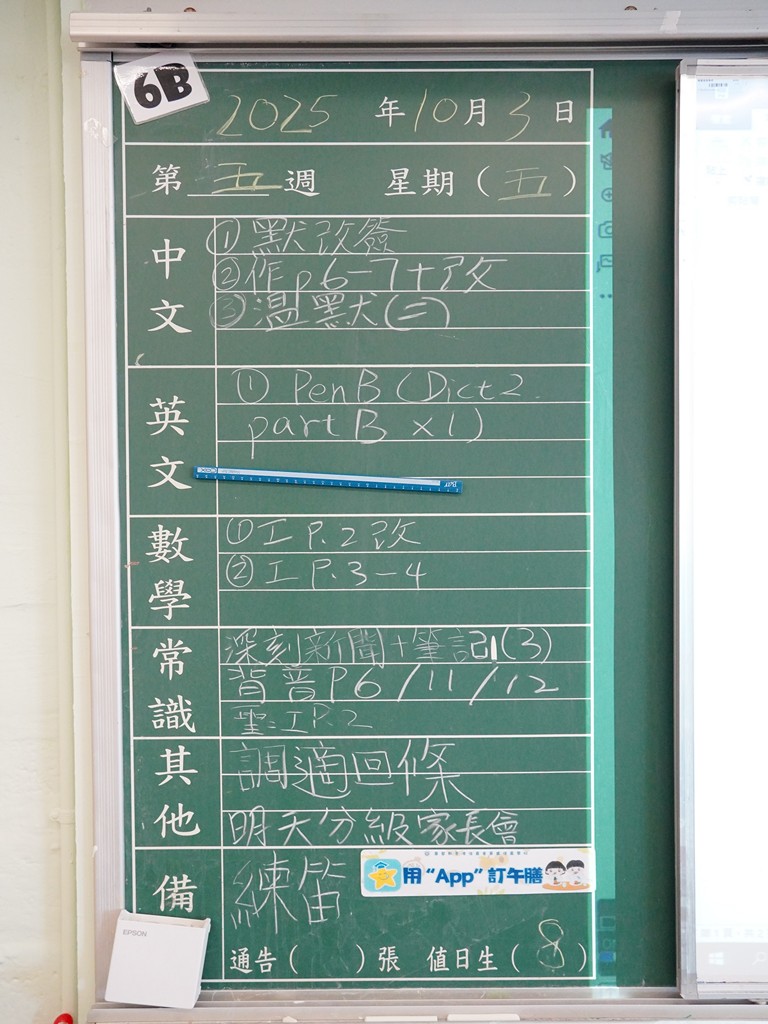 6B
2025年10月3日
第五週 星期(五)
中文
①默改簽
②作p6-7+改
③溫默(二)
英文
① Pen B (Dict 2.
part B x1)
數學
①工P.2改
②工P.3-4
常識
深刻新聞+筆記1(3)
背普P6/11/12
聖:工P.2
其他
調適回條
明天分級家長會
備
練笛
用“App”訂午膳
通告( )張 值日生(8)
EPSON